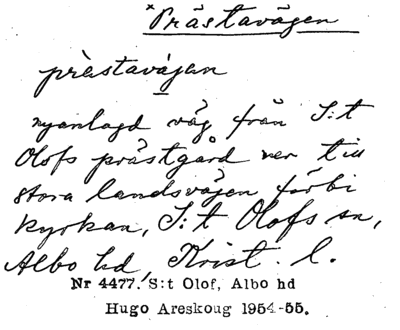 *Prästavägen
prästavájan
nyanlagd väg från S:t
Olofs prästgård ner till
stora landsvägen förbi
kyrkan, S:t Olofs sn,
Albo hd, Krist. l.
Nr 4477. S:t Olof, Albo hd
Hugo Areskoug 1954-55.